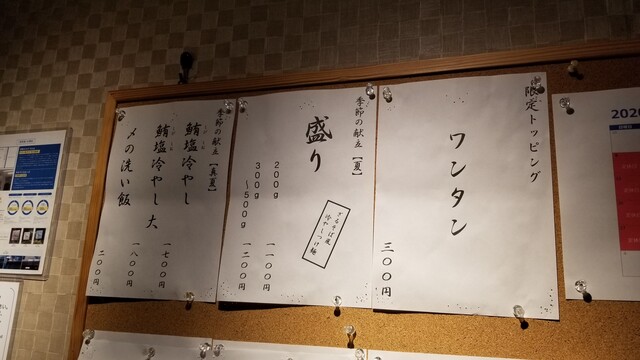 限定トッピング
ワンタン
三〇〇円
季節の献立【夏】
盛り
ざるそば風
冷やしつけ麺
200g 一一〇〇円
300g
〜500g 一二〇〇円
季節の献立【真夏】
鮪塩冷やし 一七〇〇円
鮪塩冷やし 大 一八〇〇円
〆の洗い飯 二〇〇円
2020